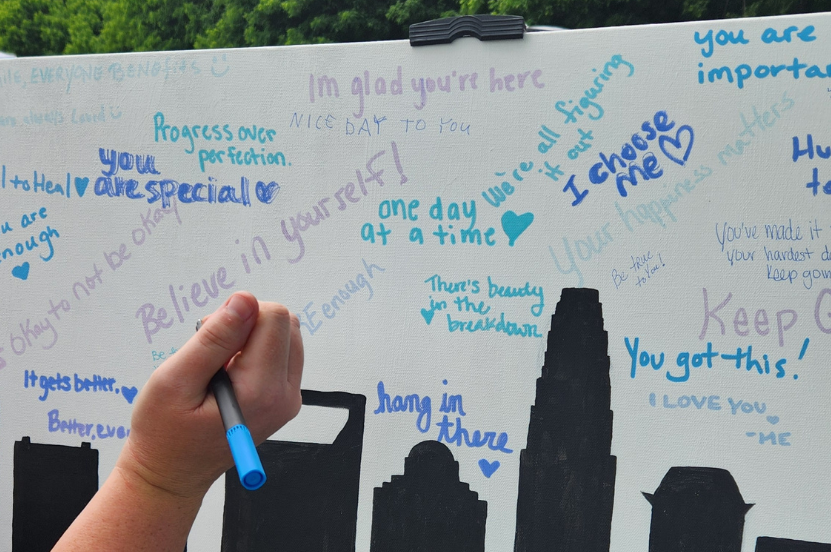 you are
importan
EVERYONE BENEFITS
Im glad you're here
NICE DAY TO YOU
Progress over
perfection.
We're all figuring
it out
I choose
me
you
are special
l to Heal
u are
enough
Believe in yourself!
okay to not be okay
one day
at a time
Your happiness matters
You've made it
your hardest d
keep goin
Be true
to You!
REenough
There's beauty
in the
breakdown
Keep G
You got this!
I LOVE YOU
-ME
It gets better,
Better, eve
hang in
there
Be
Hu
to